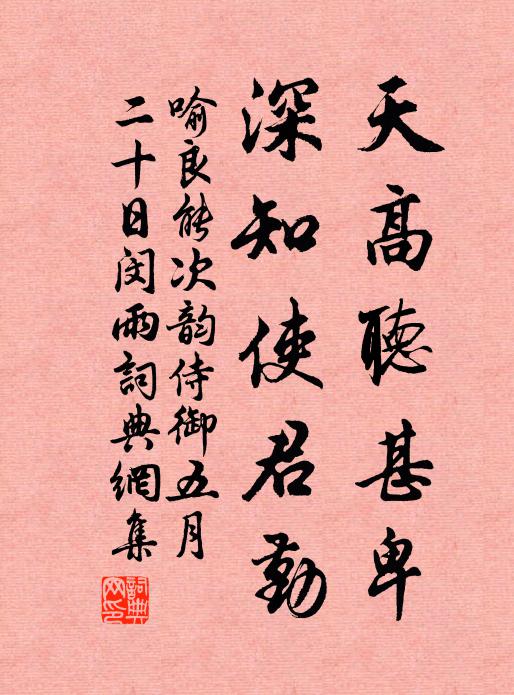 天高聽甚卑
深知使君勤
喻良能次韵侍御五月
二十日闵雨詞典網集
詞典网印